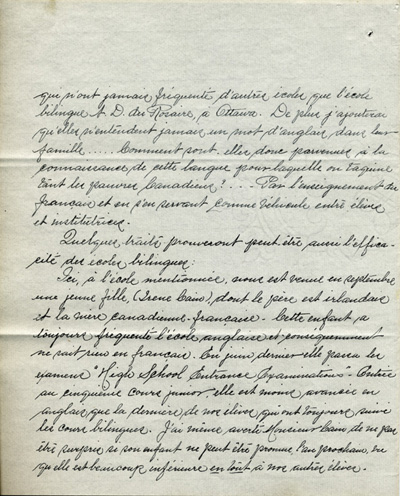 qui n'ont jamais fréquenté d'autres écoles que l'école
bilingue N. D. du Rosaire, à Ottawa. De plus j'ajouterai
qu'elles n'entendent jamais un mot d'anglais dans leur
famille...... Comment sont-elles donc parvenues à la
connaissance de cette langue pour laquelle on taquine
tant les pauvres Canadiens?.... Par l'enseignement du
français et en s'en servant comme véhicule entre élèves
et institutrices.
Quelques traits prouveront peut être aussi l'effica-
cité des écoles bilingues:
Ici, à l'école mentionnée, nous est venue en septembre
une jeune fille, (Irene), dont le père est irlandais
et la mère canadienne-française. Cette enfant a
toujours fréquenté l'école anglaise et conséquemment
ne sait rien en français. En juin dernier elle passa les
examens "High School Entrance Examinations". Entrée
au cinquième cours junior, elle est moins avancée en
anglais que la dernière de nos élèves qui ont toujours suivi
les cours bilingues. J'ai même averti Monsieur de ne pas
être surpris si son enfant ne peut être promue l'an prochain, vu
qu'elle est beaucoup inférieure en tout à nos autres élèves.